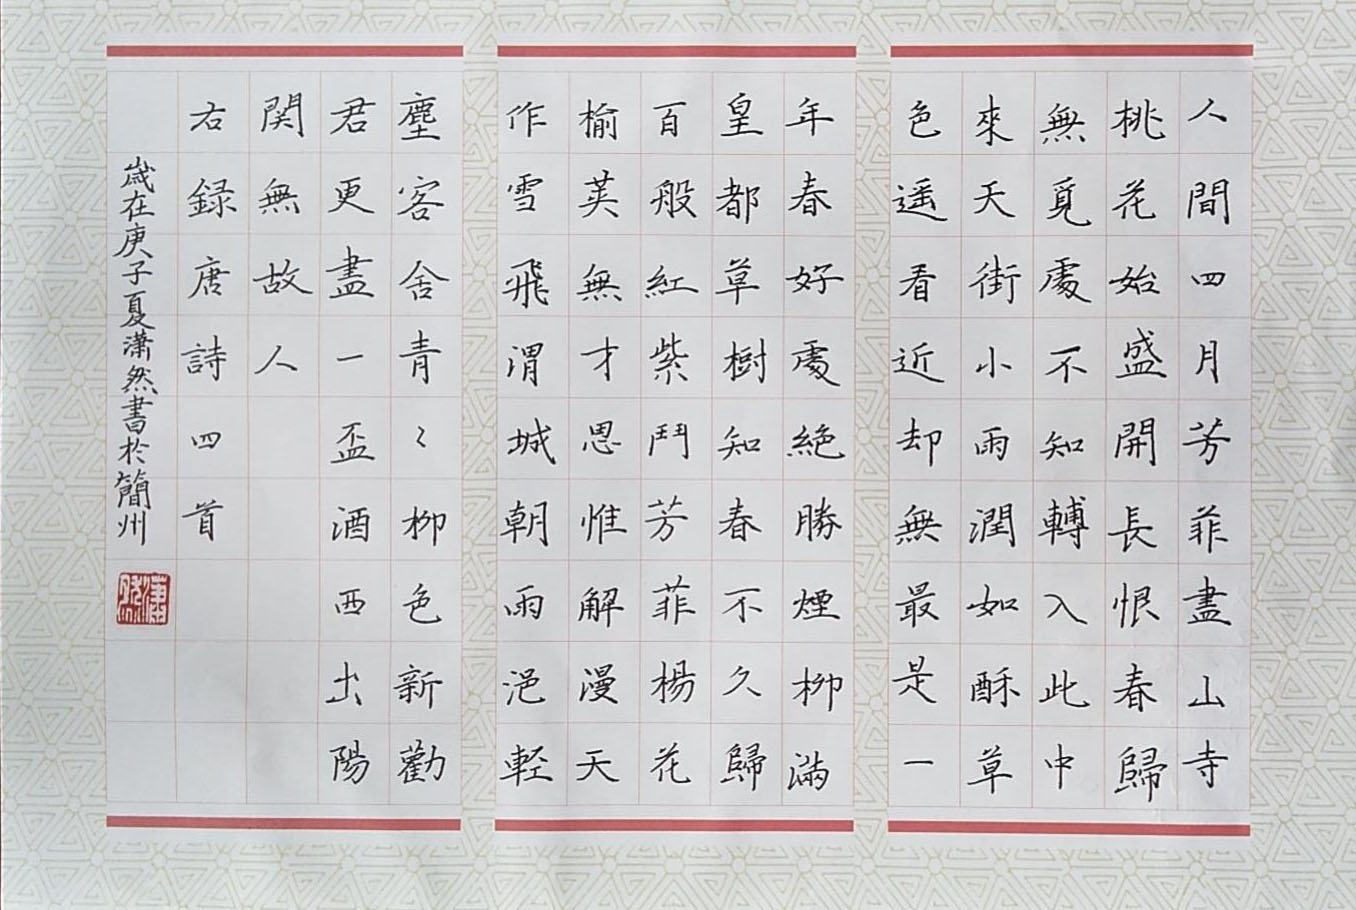 人間四月芳菲盡山寺
桃花始盛開長恨春歸
無覓處不知轉入此中
來天街小雨潤如酥草
色遥看近却無最是一
年春好處絕勝煙柳滿
皇都草樹知春不久歸
百般紅紫鬥芳菲楊花
榆荚無才思惟解漫天
作雪飛渭城朝雨浥輕
塵客舍青〻柳色新勸
君更盡一盃酒西出陽
関無故人
右録唐詩四首
歲在庚子夏瀟然書於簡州
瀟然